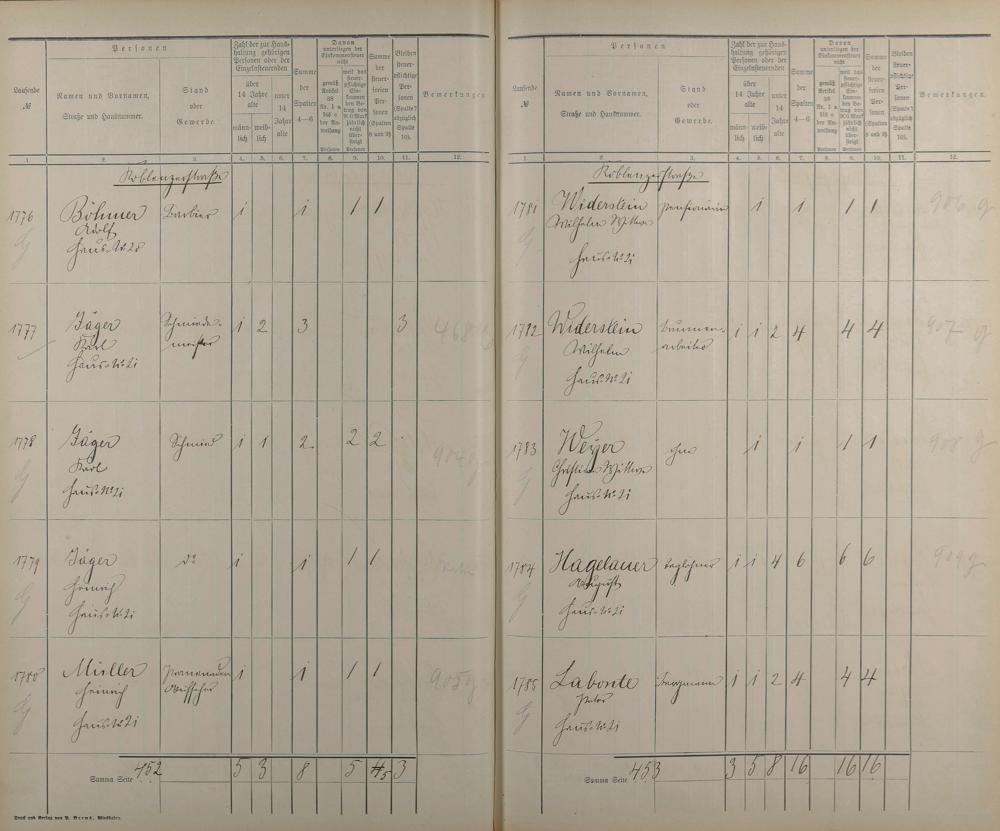 Laufende
№
Personen
Namen und Vornamen,
Straße und Hausnummer.
Stand
oder
Gewerbe.
Zahl der zur Haus-
haltung gehörigen
Personen oder der
Einzelnsteuernden
über
14 Jahre
alte
männ-
lich
weib-
lich
unter
14
Jahre
alte
Summe
der
Spalten
4—6
Davon
unterliegen der
Einkommensteuer
nicht
Summe
der
steuer-
freien
Per-
sonen
(Spalten
8 und 9).
Bleiben
steuer-
pflichtige
Per-
sonen
(Spalte 7
abzüglich
Spalte
10).
Bemerkungen.
1. 2. 3. 4. 5. 6. 7. 8. 9. 10. 11. 12.
Koblenzerstraße
1776 Böhmer Barbier 1 1 1 1
Adolf
Haus № 28
1777 Jäger Schmiede- 1 2 3 3 468
Karl meister
Haus № 21
1778 Jäger Schmied 1 1 2 2 2
Karl
Haus № 21
904 g
1779 Jäger do 1 1 1 1
Heinrich
Haus № 21
1780 Müller Promenaden 1 1 1 1 905 g
Heinrich Aufseher
Haus № 21
Summa Seite 452 5 3 8 5 5 3
Druck und Verlag von P. Bernd, Wiesbaden.
Laufende
№
Personen
Namen und Vornamen,
Straße und Hausnummer.
Stand
oder
Gewerbe.
Zahl der zur Haus-
haltung gehörigen
Personen oder der
Einzelnsteuernden
über
14 Jahre
alte
männ-
lich
weib-
lich
unter
14
Jahre
alte
Summe
der
Spalten
4—6
Davon
unterliegen der
Einkommensteuer
nicht
Summe
der
steuer-
freien
Per-
sonen
(Spalten
8 und 9).
Bleiben
steuer-
pflichtige
Per-
sonen
(Spalte 7
abzüglich
Spalte
10).
Bemerkungen.
1. 2. 3. 4. 5. 6. 7. 8. 9. 10. 11. 12.
Koblenzerstraße
1781 Widerstein Pensionärin 1 1 1 1 906 g
Wilhelm Wittwe
Haus № 21
1782 Widerstein Brunnen- 1 1 2 4 4 4 907 g
Wilhelm arbeiter
Haus № 21
1783 Weyer ohne 1 1 1 1 908 g
Christian Wittwe
Haus № 21
1784 Hagelauer Taglöhner 1 1 4 6 6 6 909 g
August
Haus № 21
1785 Labonte Bergmann 1 1 2 4 4 4
Peter
Haus № 21
Summa Seite 453 3 5 8 16 16 16